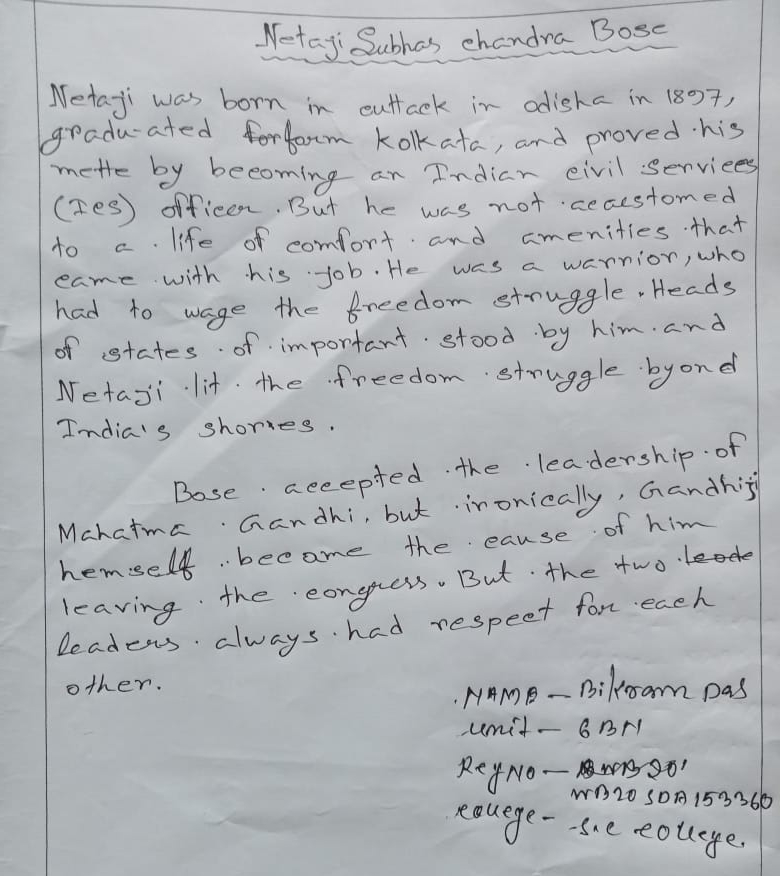 Netaji Subhas chandra Bose
Netaji was born in cuttack in odisha in 1897,
graduated forform kolkata, and proved his
mette by becoming an Indian civil services
(Ics) officer. But he was not accustomed
to a life of comfort and amenities that
came with his job. He was a warrior, who
had to wage the freedom struggle. Heads
of states of important stood by him and
Netaji lit the freedom struggle byond
India's shorres.
Bose accepted the leadership of
Mahatma Gandhi, but ironically, Gandhiji
hemself became the cause of him
leaving the congress. But the two leade
leaders always had respect for each
other.
NAME - Bikram Das
unit - 6 BN
Reg No -
WB20SDA153360
college - college.